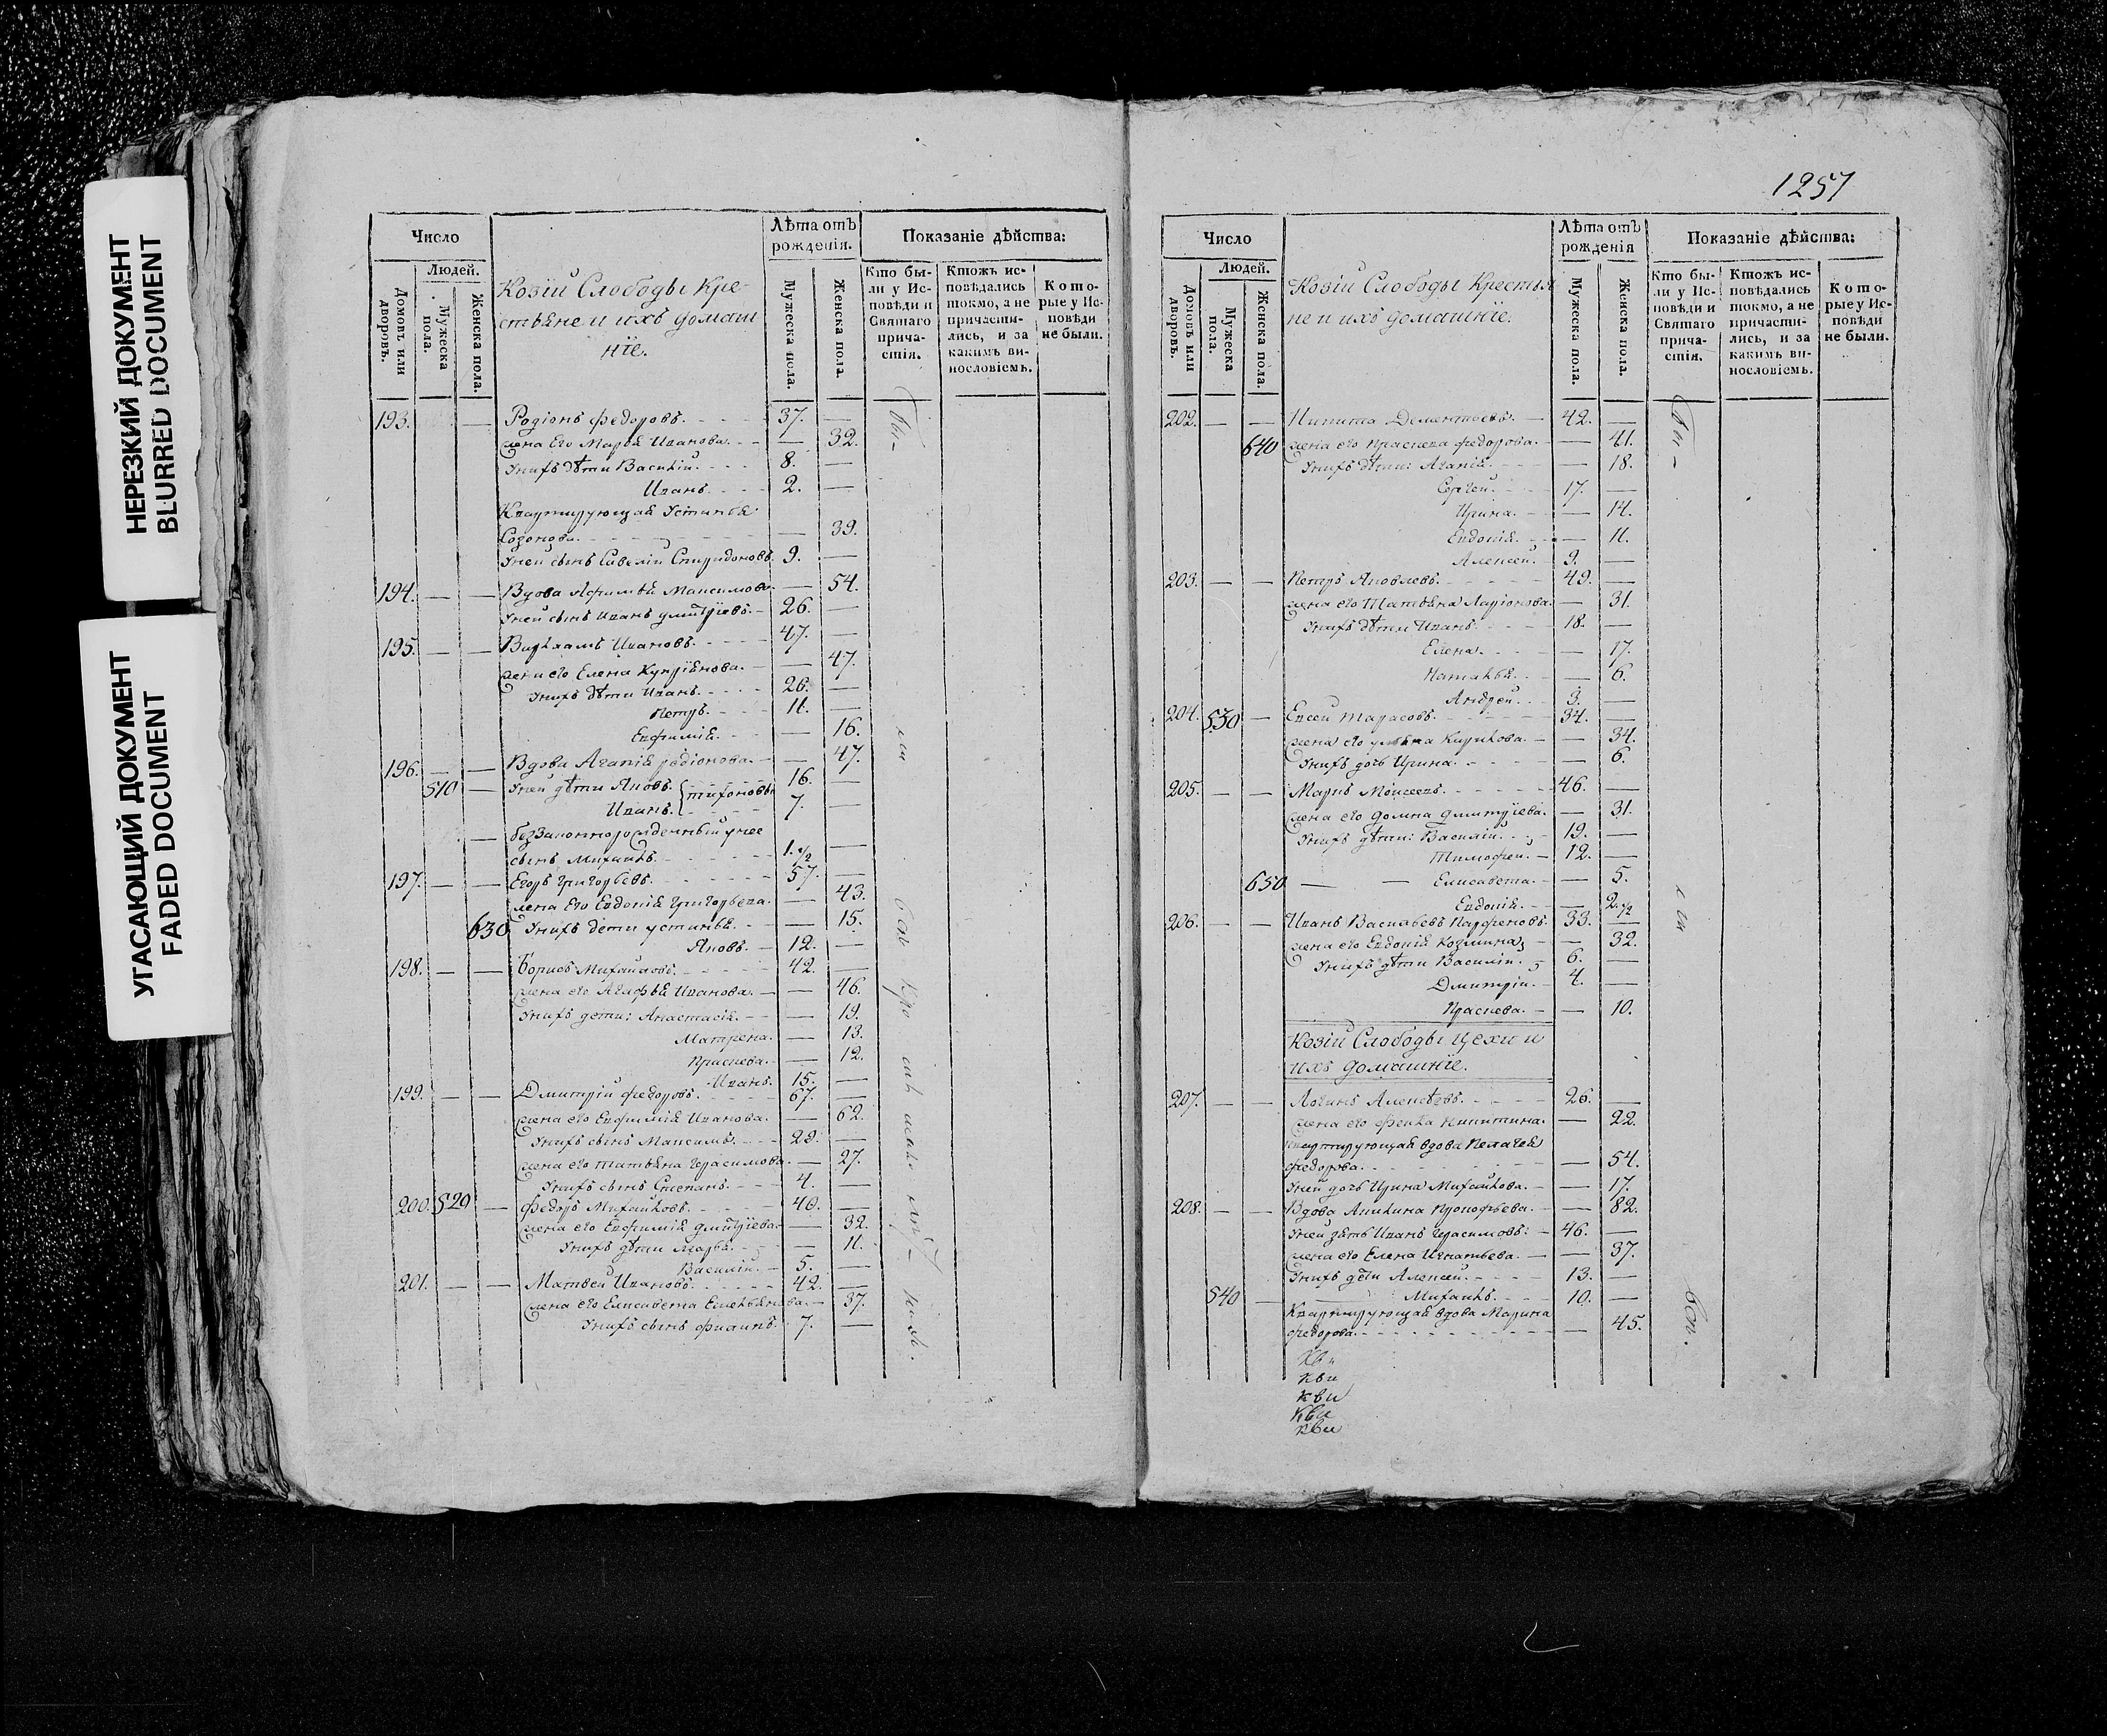 НЕРЕЗКИЙ ДОКУМЕНТ
BLURRED DOCUMENT
УГАСАЮЩИЙ ДОКУМЕНТ
FADED DOCUMENT
Число
Людей.
Домовъ или дворовъ.
Мужеска пола.
Женска пола.
Козїй Слободы Кре-
стьяне и ихъ домаш
нїе.
Лѣта отъ рожденія.
Мужеска пола.
Женска пола.
Показаніе дѣйства:
Кто бы-
ли у Ис-
повѣди и
Святаго
прича-
стія.
Ктожъ ис-
повѣдались
токмо, а не
причасти-
лись, и за
какимъ ви-
нословіемъ.
Кото-
рые у Ис-
повѣди
не были.
193. Родіонъ Федоровъ. 37. —
жена Его Марья Иванова. — 32.
У нихъ дѣти Василій. 8. —
Иванъ. 2. —
Квартирующая Устинья
Созонова. — 39.
У ней сынъ Савелій Спиридоновъ. 9. —
194. — — Вдова Афимья Максимова — 54.
У ней сынъ Иванъ Дмитріевъ. 26. —
195. — — Варлаамъ Ивановъ. 47. —
жена его Елена Купріянова. — 47.
У нихъ дѣти Иванъ. 26. —
Петръ. 11. —
Евфимія. — 16.
196. — — Вдова Агапія родіонова. — 47.
510 — У ней дѣти Яковъ. тихоновы 16. —
Иванъ. 7. —
— беззаконнорожденный у нее
сынъ Михаилъ. 1.1/2 —
197. — — Егоръ Григорьевъ. 57. —
жена Его Евдокія Григорьева. — 43.
630 У нихъ дети устинья. — 15.
Яковъ. 12. —
198. — — Борисъ Михайловъ. 42. —
жена его Агафья Иванова. — 46.
У нихъ дети: Анастасія. — 19.
Матрена. — 13.
Праскева. — 12.
Иванъ. 15. —
199. — — Дмитрій Федоровъ. 67. —
жена его Евфимія Иванова. — 62.
У нихъ сынъ Максимъ. 29. —
жена его татьяна Герасимова. — 27.
У нихъ сынъ Степанъ. 4. —
200. 520 — Федоръ Михайловъ. 40. —
жена его Евфимія дмитріева — 32.
У нихъ дѣти Марья. — 11.
Василій. 5. —
201. — — Матвей Ивановъ. 42. —
жена его Елисавета Емельянова. — 37.
У нихъ сынъ Филипъ. 7. —
1257
Число
Людей.
Домовъ или дворовъ.
Мужеска пола.
Женска пола.
Козїй Слободы Крестья
не и ихъ домашнїе.
Лѣта отъ рожденія
Мужеска пола.
Женска пола.
Показаніе дѣйства:
Кто бы-
ли у Ис-
повѣди и
Святаго
прича-
стія.
Ктожъ ис-
повѣдались
токмо, а не
причасти-
лись, и за
какимъ ви-
нословіемъ.
Кото-
рые у Ис-
повѣди
не были.
202. — — Никита Дементьевъ. 42. —
640 жена его Праскева Федорова. — 41.
У нихъ дѣти: Агапія. — 18.
Сергей. 17. —
Ирина. — 14.
Евдокія. — 11.
Алексей. 9. —
203. — — Петръ Яковлевъ. 49. —
жена его Татьяна Ларіонова. — 31.
У нихъ дѣти Иванъ. 18. —
Елена. — 17.
Наталья. — 6.
Андрей. 3. —
204. 530 — Евсей Тарасовъ. 34. —
жена его Кирилова. — 34.
У нихъ дочь Ирина. — 6.
205. — — Маркъ Моисеевъ. 46. —
жена его Домна дмитріева. — 31.
У нихъ дѣти: Василій. 19. —
Тимофей. 12. —
650 — — Елисавета. — 5.
Евдокія. — 2.1/2
206. — — Иванъ Васильевъ Парфеновъ. 33. —
жена его Евдокія Козмина — 32.
У нихъ дѣти Василій. 6. —
Дмитрій. 4. —
Праскева. — 10.
Козїй Слободы цехи и
ихъ домашнїе.
207. — — Логинъ Алексѣевъ. 26. —
жена его фекла Никитина. — 22.
квартирующая вдова Пелагея
Федорова. — 54.
У ней дочь Ирина Михайлова. — 17.
208. — — Вдова Акилина Прокофьева. — 82.
У ней зять Иванъ Герасимовъ. 46. —
жена его Елена Игнатьева. — 37.
У нихъ дѣти Алексей. 13. —
540 — Михаилъ. 10. —
Квартирующая вдова Марина
Федорова. — 45.
кви
кви
кви
кви
кви